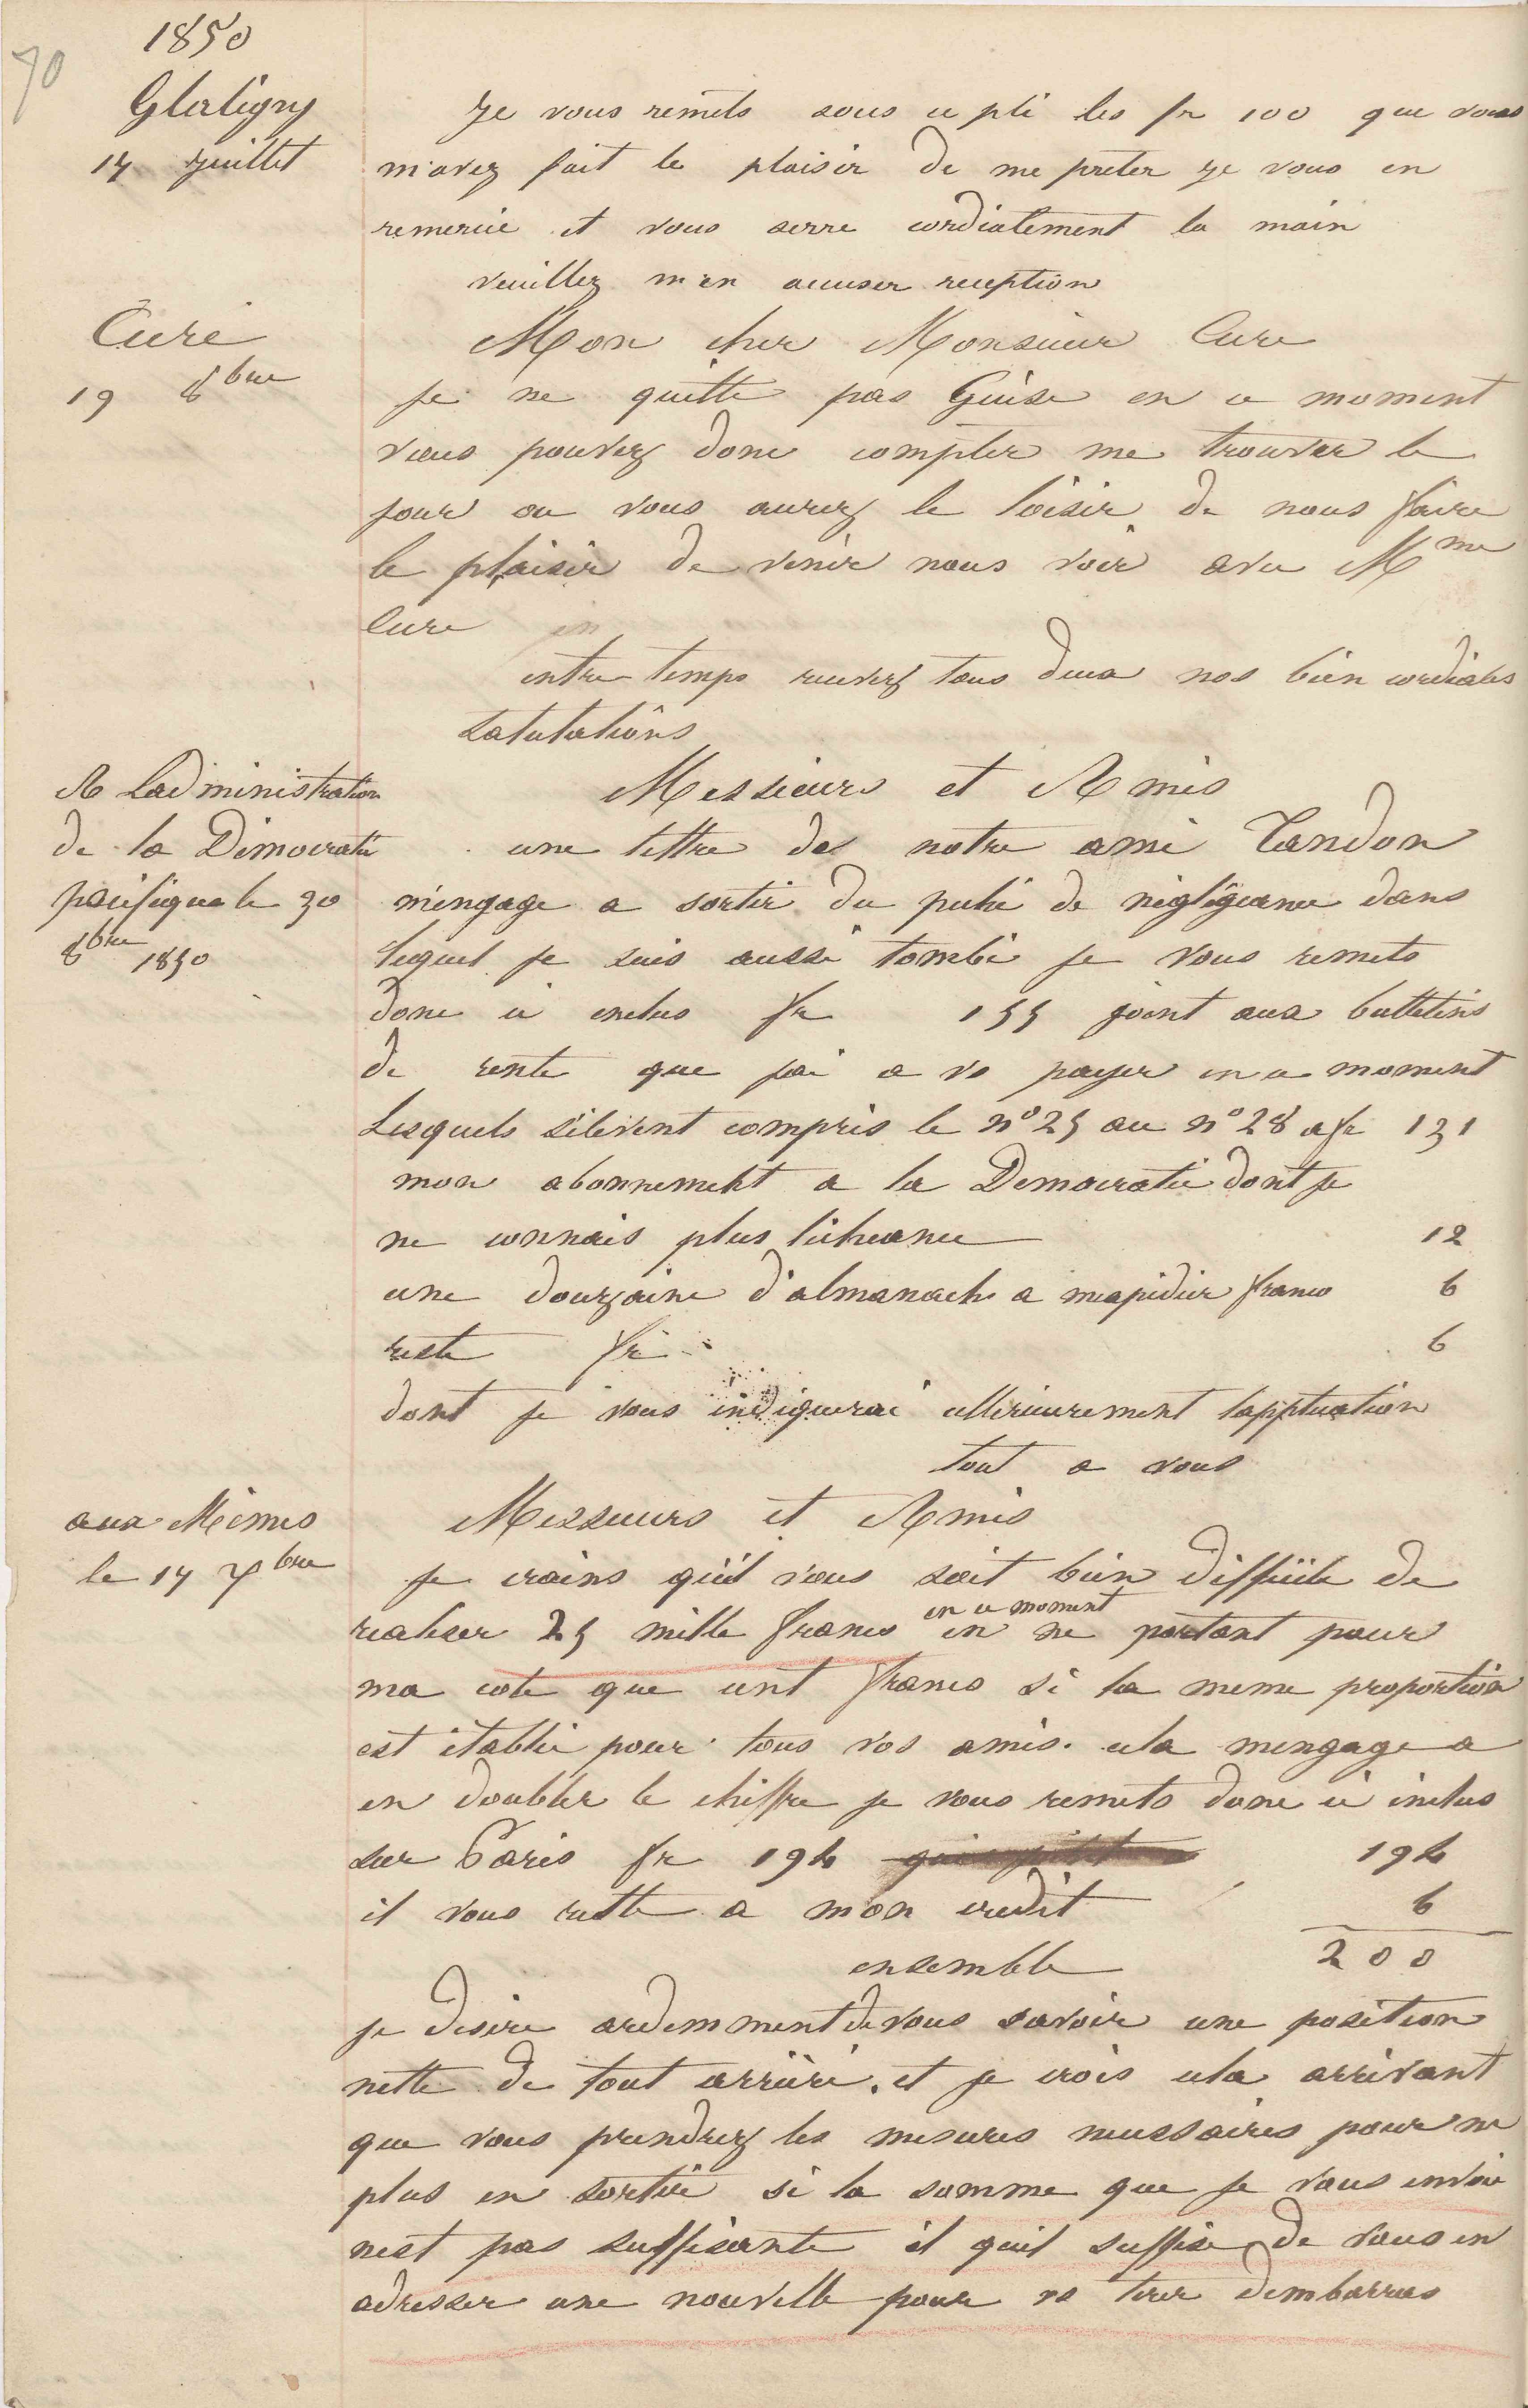 70
1850
Glatigny
17 Juillet
Je vous remets sous ce pli les fr 100 que vous
m'avez fait le plaisir de me preter je vous en
remercie et vous serre cordialement la main
veuillez m'en accuser reception
Curé
19 8bre
Mon cher Monsieur Cure
je ne quitte pas Guise en ce moment
vous pouvez donc compter me trouver le
jour ou vous aurez le loisir de nous faire
le plaisir de venir nous voir avec Mme
Cure
entre temps recevez tous deux nos bien cordiales
salutations
A Ladministration
de la Démocratie
pacifique le 30
8bre 1850
Messieurs et Amis
une lettre de notre ami Tandon
m'engage a sortir du peché de négligeance dans
lequel je suis aussi tombé je vous remets
donc ci inclus fr 155 joint aux bulletins
de rente que jai a vs payer en ce moment
Lesquels s'élevent compris le n° 25 au n° 28 a fr 131
mon abonnement a la Democratie dont je
ne connais plus l'écheance 12
une douzaine d'almanach a mexpédier franco 6
reste fr 6
dont je vous indiquerai ulterieurement lapplication
tout a vous
aux Mêmes
le 17 Xbre
Messieurs et Amis
je crains qu'il vous soit bien difficile de
realiser 25 mille francs en ce moment en ne portant pour
ma cote que cent francs si la meme proportion
est établie pour tous vos amis. cela mengage a
en doubler le chiffre je vous remets donc ci inclus
sur Paris fr 194 194
il vous reste a mon credit 6
ensemble 200
je desire ardemment de vous savoir une position
nette de tout arriéré. et je crois cela arrivant
que vous prendrez les mesures necessaires pour ne
plus en sortir si la somme que je vous envoie
nest pas suffisante il quil suffise de vous en
adresser une nouvelle pour vs tirer dembarras